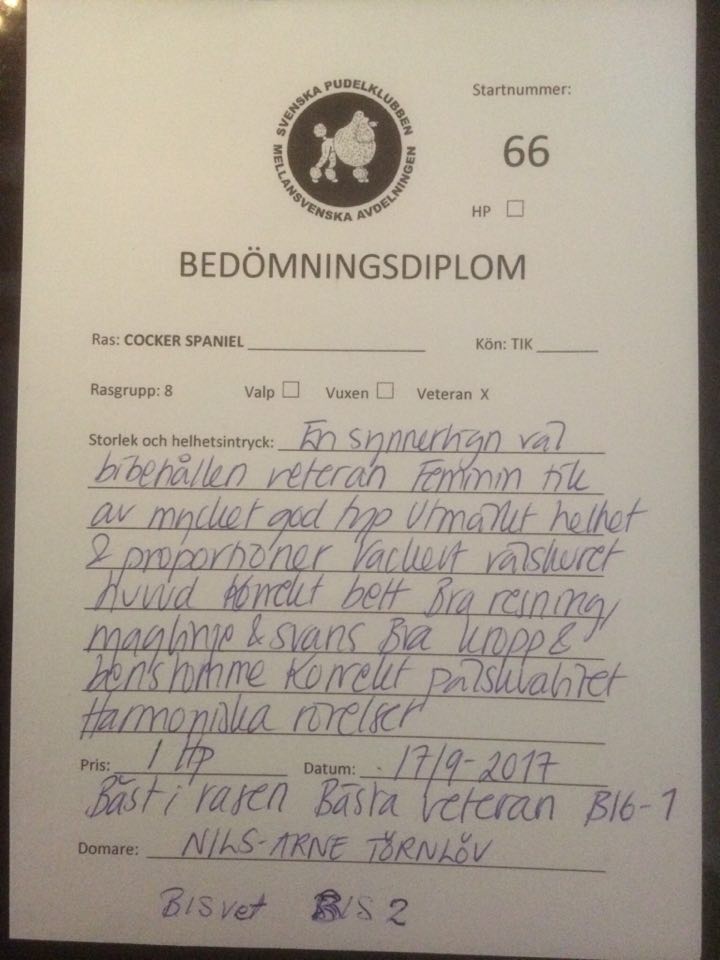 SVENSKA PUDELKLUBBEN
MELLANSVENSKA AVDELNINGEN
Startnummer:
66
HP
BEDÖMNINGSDIPLOM
Ras: COCKER SPANIEL
Kön: TIK
Rasgrupp: 8 Valp Vuxen Veteran X
Storlek och helhetsintryck: En synnerligen väl
bibehållen veteran Feminin tik
av mycket god typ Utmärkt helhet
& proportioner Vackert välskuret
huvud Korrekt bett Bra resning,
maglinje & svans Bra kropp &
benstomme Korrekt pälskvalitet
Harmoniska rörelser
Pris: 1 Hp Datum: 17/9-2017
Bäst i rasen Bästa veteran BIG-1
Domare: NILS-ARNE TÖRNLÖV
BISvet BIS 2